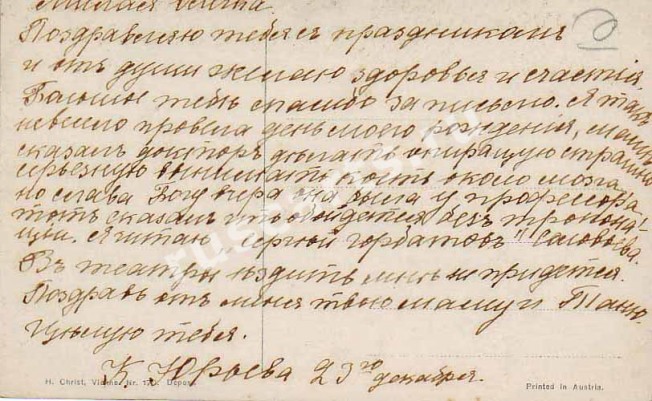 Милая
Поздравляю тебя съ праздникамъ
и отъ души желаю здоровья и счастія.
Большое тебѣ спасибо за письмо. Я такъ
невесело провела день моего рожденія, мамѣ
сказалъ докторъ дѣлать операцію страшно
серьезную вынимать кость около мозга
но слава Богу вчера она была у профессора
тотъ сказалъ что обойдется безъ трепона-
ціи. Я читаю „Сергѣй Горбатовъ" Соловьева.
Въ театры ѣздить мнѣ не придется.
Поздравь отъ меня твою маму и Таню.
Цѣлую тебя.
К Юрьева 23го декабря.
H. Christ, Vienne. Nr. Dépos. Printed in Austria.
rus